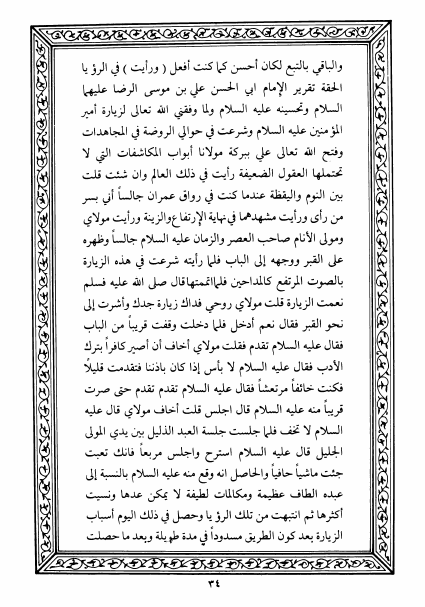 والباقي بالتبع لكان أحسن كما كنت أفعل ( ورأيت ) في الرؤيا
الحقة تقرير الإمام ابي الحسن علي بن موسى الرضا عليهما
السلام وتحسينه عليه السلام ولما وفقني الله تعالى لزيارة أمير
المؤمنين عليه السلام وشرعت في حوالي الروضة في المجاهدات
وفتح الله تعالى علي ببركة مولانا أبواب المكاشفات التي لا
تحتملها العقول الضعيفة رأيت في ذلك العالم وان شئت قلت
بين النوم واليقظة عندما كنت في رواق عمران جالساً أني بسر
من رأى ورأيت مشهدهما في نهاية الإرتفاع والزينة ورأيت مولاي
ومولى الأنام صاحب العصر والزمان عليه السلام جالساً وظهره
على القبر ووجهه إلى الباب فلما رأيته شرعت في هذه الزيارة
بالصوت المرتفع كالمداحين فلما اتممتها قال صلى الله عليه فسلم
نعمت الزيارة قلت مولاي روحي فداك زيارة جدك وأشرت إلى
نحو القبر فقال نعم أدخل فلما دخلت وقفت قريباً من الباب
فقال عليه السلام تقدم فقلت مولاي أخاف أن أصير كافراً بترك
الأدب فقال عليه السلام لا بأس إذا كان باذننا فتقدمت قليلاً
فكنت خائفاً مرتعشاً فقال عليه السلام تقدم تقدم حتى صرت
قريباً منه عليه السلام قال اجلس قلت أخاف مولاي قال عليه
السلام لا تخف فلما جلست جلسة العبد الذليل بين يدي المولى
الجليل قال عليه السلام استرح واجلس مربعاً فانك تعبت
جئت ماشياً حافياً والحاصل انه وقع منه عليه السلام بالنسبة إلى
عبده الطاف عظيمة ومكالمات لطيفة لا يمكن عدها ونسيت
أكثرها ثم انتبهت من تلك الرؤيا وحصل في ذلك اليوم أسباب
الزيارة بعد كون الطريق مسدوداً في مدة طويلة وبعد ما حصلت
٣٤